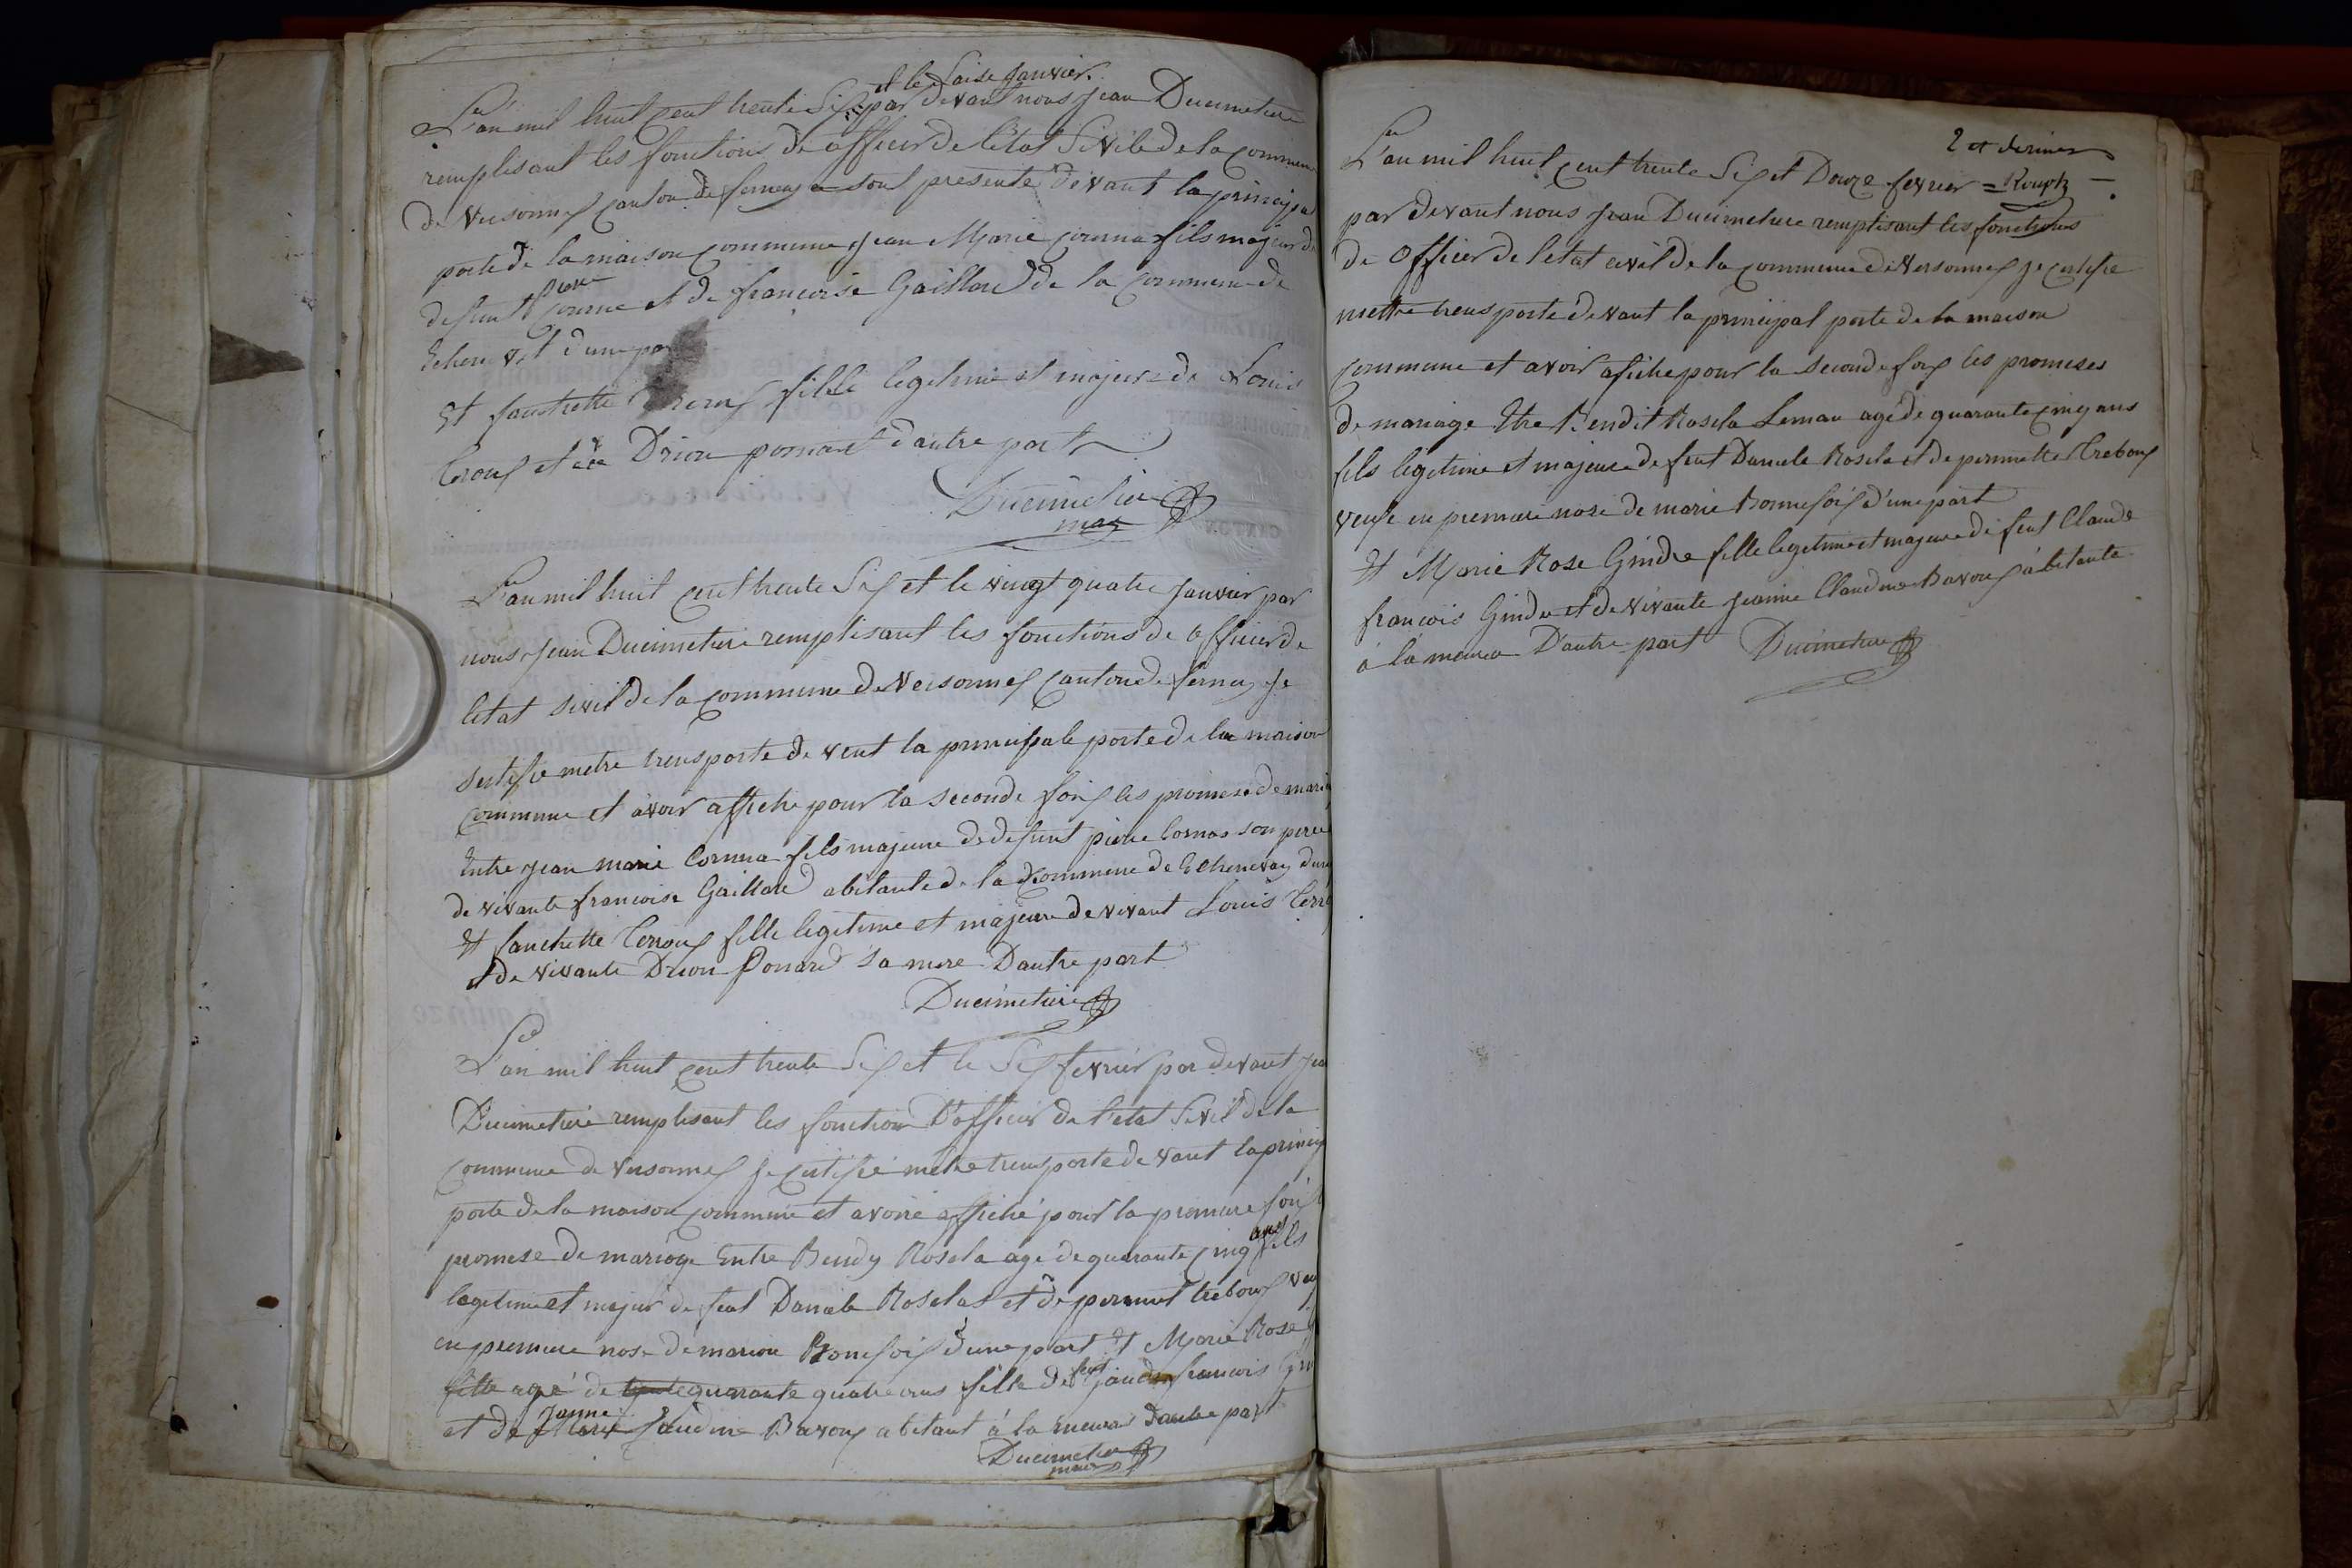 et le saise Janvier
L'an mil huit cent trente Six par devant nous Jean Ducimetiere
remplisant les fonctions de officier de l'état Sivile de la commune
de Versonnex canton de ferney a sont presenté devant la principal
porte de la maison commune Jean Marie Cornna fils majeur de
defunt pierre Cornna et de francoise Gaillard de la commune de
Echenevet d'une par
Et fanchette fille legetime et majeure de Louis
Terroux et de Drion ponard d'autre part
Ducimetier
maire
L'an mil huit cent trente Six et le vingt quatre Janvier par
nous Jean Ducimetiere remplisant les fonctions de officier de
letat sivil de la commune de Versonnex canton de ferney Je
sertifie metre trensporte de vent la principale porte de la maison
commune et avoir affiche pour la seconde fois les promese de maria
Entre Jean marie Cornna fils majeure de defunt pierre Cornas son pere
de vivante francoise Gaillard abitante de la commune de Echenevay dune
Et fanchette Terroux fille legetime et majeure de vivant Louis Terro
et de vivante Drion Ponard sa mere D'autre part
Ducimetiere
L'an mil huit cent trente Six et le Six fevrier par devant Jea
Ducimetiere remplisant les fonction D'officier de l'etat Sivil de la
commune de Versonnex Je certifie metre trensporte de vant la princip
porte de la maison commune et avoire affiché pour la premiere fois l
promese de mariage Entre Bendy Rosela agé de quarante cinq ans fils
legetime et majeur de feut Daniele Roselas et de pernnet treboux veu
en premiere nose de marion Bonnefois d'une part Et Marie Rose
fille agé de quarante quatre ans fille de feut francois Gin
et de Janne Claudine Bavoux abitant à la meura dautre part
Ducimetier
maire
2 et dernier
L'an mil huit cent trente Six et Douze fevrier =
par devant nous Jean Ducimetiere remplisant les fonctions
de officier de letat civil de la commune de Versonnex je certifie
mettre trensporte devant la principal porte de la maison
commune et avoir afiche pour la seconde fois les promeses
de mariage Etre Bendit Rosela Leman agé de quarante cinq ans
fils legetime et majeure de feut Daniele Rosela et de pernnette Treboux
veufe en premiere nose de marie Bonnefois d'une part
Et Marie Rose Gindre fille legetime et majeure de feut Claude
francois Gindre et de vivante Jeanne Claudine Bavoux abitante
à la meura D'autre part Ducimetiere